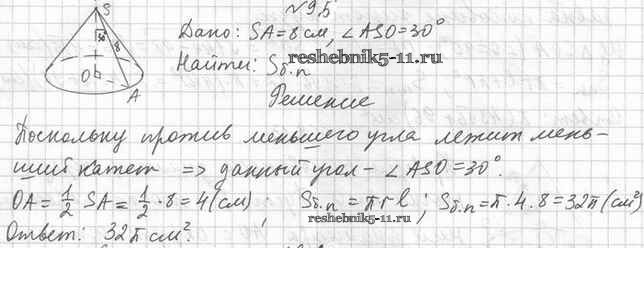 № 95
S
30
8
O
A
Дано: SA = 8 см, ∠ASO = 30°
reshebnik5-11.ru
Найти: Sб.п
Решение
Поскольку против меньшего угла лежит мень-
ший катет => данный угол - ∠ASO = 30°.
OA = 1/2 SA = 1/2 · 8 = 4 (см) Sб.п = πrl ; Sб.п = π·4·8 = 32π (см²)
reshebnik5-11.ru
Ответ: 32π см².